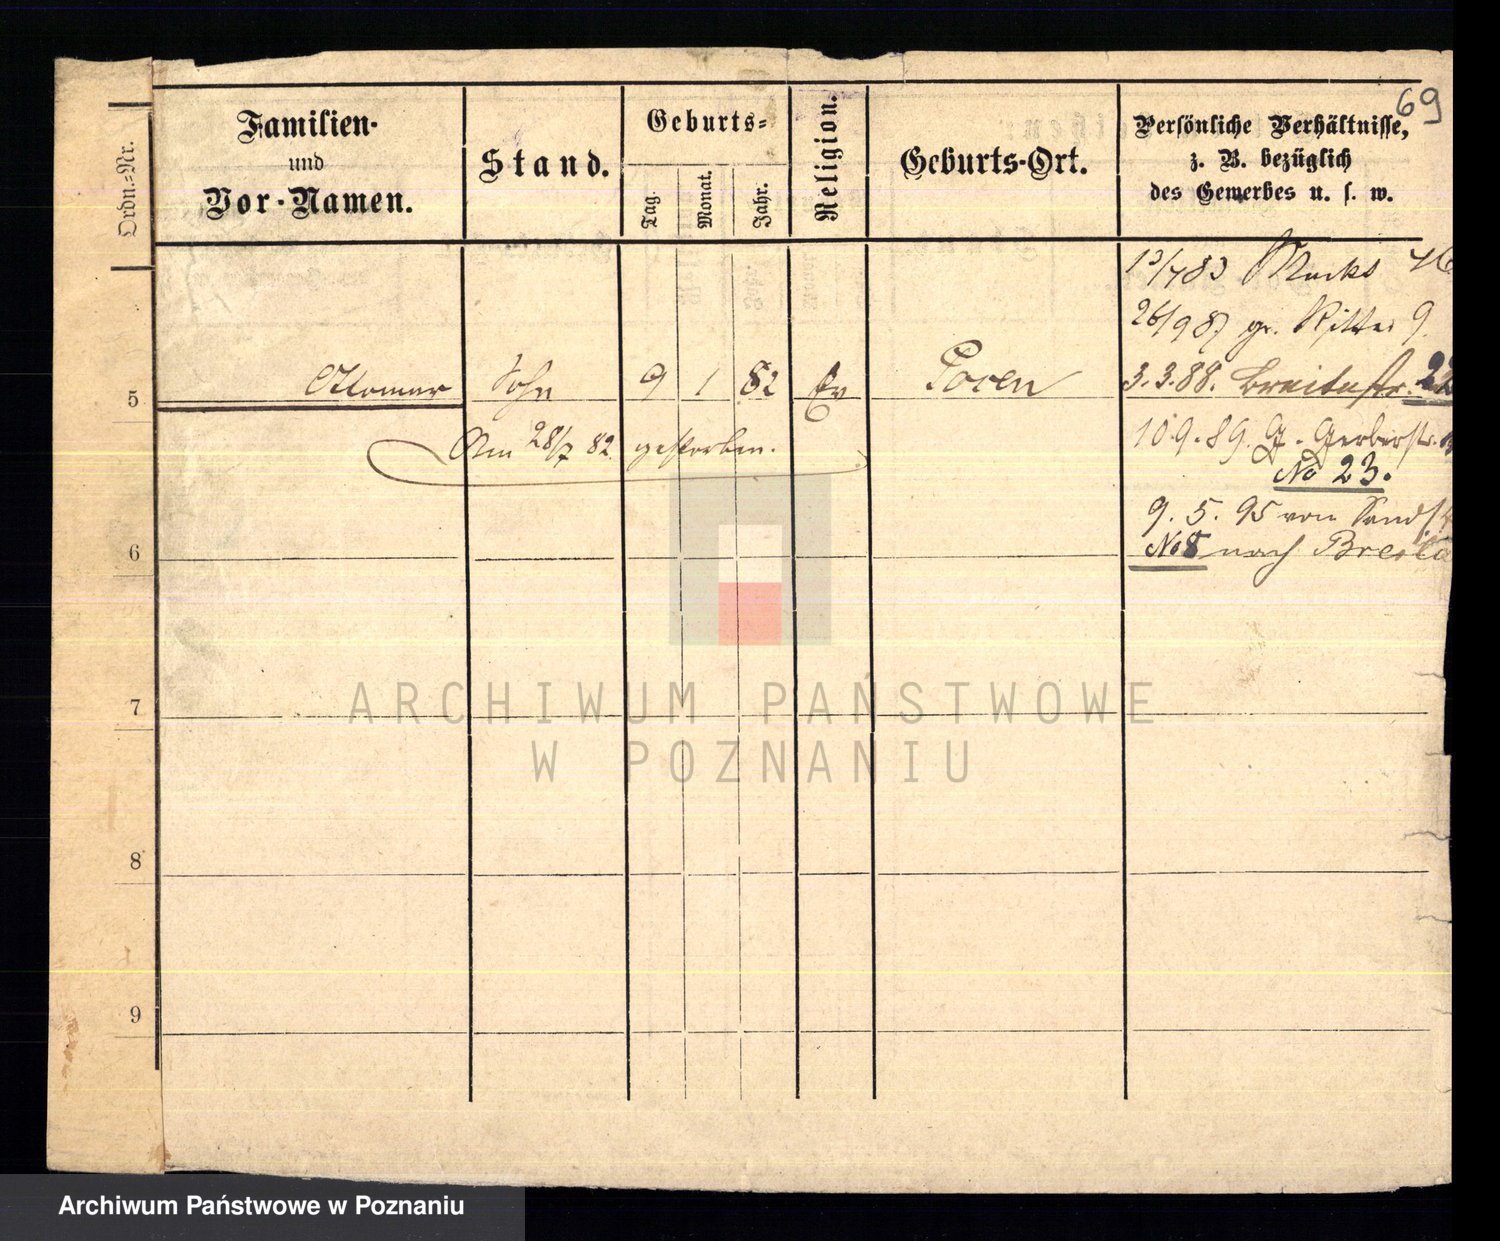 69
Ordn.-Nr.
Familien-
und
Vor-Namen.
Stand.
Geburts-
Tag.
Monat.
Jahr.
Religion.
Geburts-Ort.
Persönliche Verhältnisse,
z. B. bezüglich
des Gewerbes u. s. w.
5 Ottomar Sohn 9 1 82 Ev Posen
Am 28/7 82 gestorben.
26/9 87 gr. Ritter 9.
3.3.88. Breitestr. 22
10.9.89. G. Gerberstr.
No 23.
9. 5. 95 von Sandst
No 8 nach Bresla
6
7
8
9
ARCHIWUM PAŃSTWOWE
W POZNANIU
Archiwum Państwowe w Poznaniu